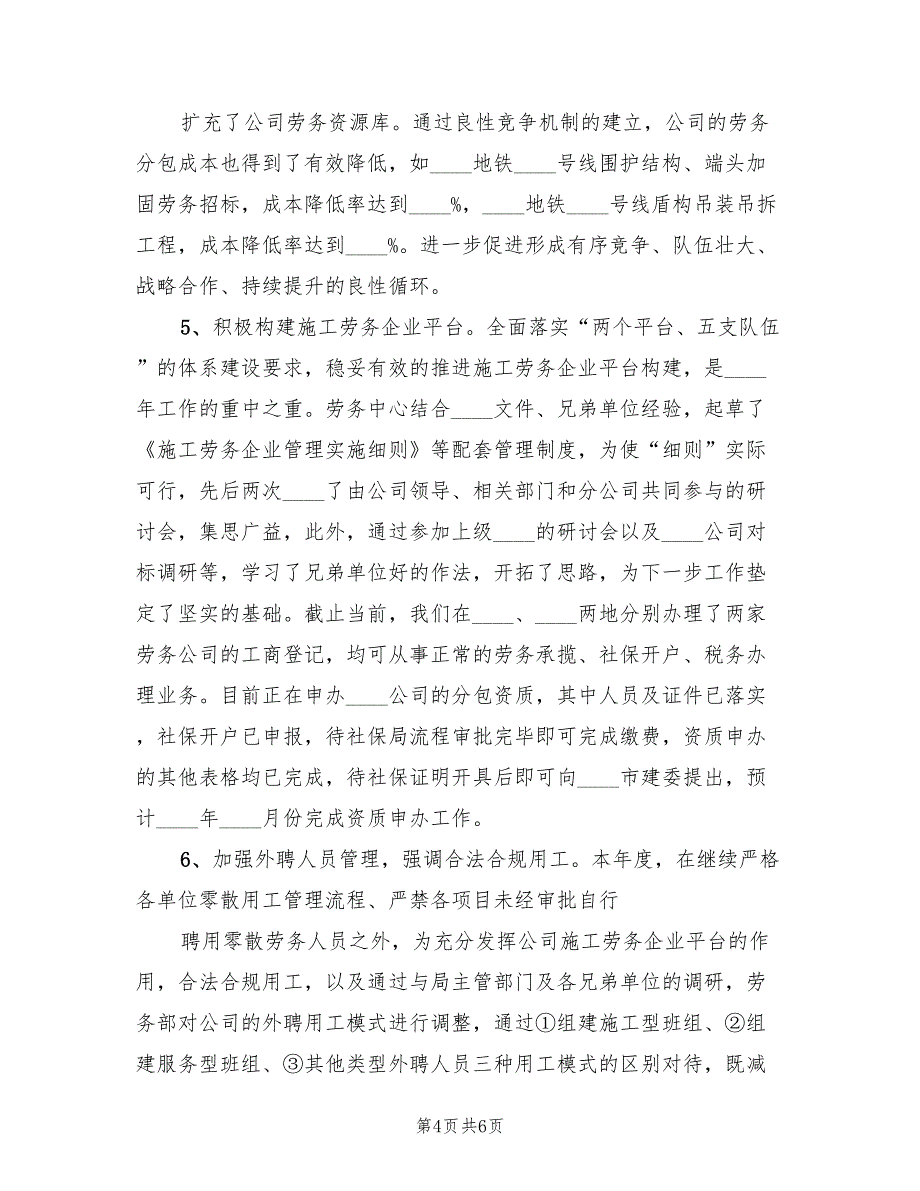 扩充了公司劳务资源库。通过良性竞争机制的建立，公司的劳务
分包成本也得到了有效降低，如____地铁____号线围护结构、端头加
固劳务招标，成本降低率达到____%，____地铁____号线盾构吊装吊拆
工程，成本降低率达到____%。进一步促进形成有序竞争、队伍壮大、
战略合作、持续提升的良性循环。
5、积极构建施工劳务企业平台。全面落实“两个平台、五支队伍
”的体系建设要求，稳妥有效的推进施工劳务企业平台构建，是____
年工作的重中之重。劳务中心结合____文件、兄弟单位经验，起草了
《施工劳务企业管理实施细则》等配套管理制度，为使“细则”实际
可行，先后两次____了由公司领导、相关部门和分公司共同参与的研
讨会，集思广益，此外，通过参加上级____的研讨会以及____公司对
标调研等，学习了兄弟单位好的作法，开拓了思路，为下一步工作垫
定了坚实的基础。截止当前，我们在____、____两地分别办理了两家
劳务公司的工商登记，均可从事正常的劳务承揽、社保开户、税务办
理业务。目前正在申办____公司的分包资质，其中人员及证件已落实
，社保开户已申报，待社保局流程审批完毕即可完成缴费，资质申办
的其他表格均已完成，待社保证明开具后即可向____市建委提出，预
计____年____月份完成资质申办工作。
6、加强外聘人员管理，强调合法合规用工。本年度，在继续严格
各单位零散用工管理流程、严禁各项目未经审批自行
聘用零散劳务人员之外，为充分发挥公司施工劳务企业平台的作
用，合法合规用工，以及通过与局主管部门及各兄弟单位的调研，劳
务部对公司的外聘用工模式进行调整，通过①组建施工型班组、②组
建服务型班组、③其他类型外聘人员三种用工模式的区别对待，既减
第4页 共6页